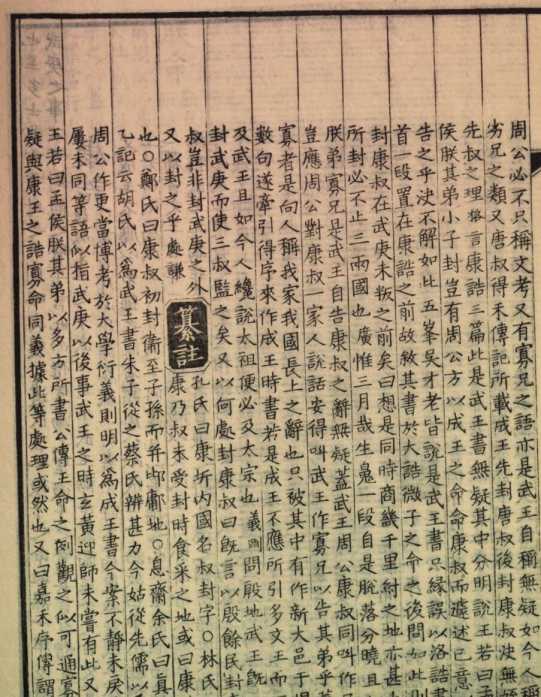 周公必不只稱文考又有寡兄之語亦是武王自稱無疑如今人稱
劣兄之類又唐叔得禾傳記所載成王先封唐叔後封康叔決無
先叔之理峯言康誥三篇此是武王書無疑其中分明說王若曰
侯朕其弟小子封豈有周公方以成王之命命康叔而遽述已意
告之乎決不解如此五峯吳才老皆說是武王書只緣誤以洛誥書
首一段置在康誥之前故敘其書於大誥微子之命之後問如此則
封康叔在武庚未叛之前矣曰想是同時商畿千里紂之地亦甚
所封必不止三兩國也廣惟三月哉生魄一段自是脫落分曉且
朕弟寡兄是武王自告康叔之辭無疑蓋武王周公康叔同叫作
豈應周公對康叔一家人說話安得叫武王作寡兄以告其弟乎蓋
寡者是向人稱我家我國長上之辭也只被其中有作新大邑于周
數句遂牽引得序來作成王時書若是成王不應所引多文王而
及武王且如今人纔說太祖便必及太宗也義剛問殷地武王旣
封武庚而使三叔監之矣又以何處封康叔曰旣言以殷餘民封
叔豈非封武庚之外
又以封之乎處謙
纂註
孔氏曰康圻内國名叔封字○林氏
康乃叔未受封時食采之地或曰康
也○鄭氏曰康叔初封衞至子孫而幷邶鄘地○息齋余氏曰眞
乙記云胡氏以爲武王書朱子從之蔡氏辨甚力今姑從先儒以
周公作更當博考於大學衍義則明以爲成王書今案不靜未戾
屢未同等語以指武庚以後事武王之時玄黃迎師未嘗有此又
王若曰孟侯朕其弟以多方所書公傳王命之例觀之似可通寡
疑與康王之誥寡命同義據此等處理或然也又曰嘉禾序傳謂